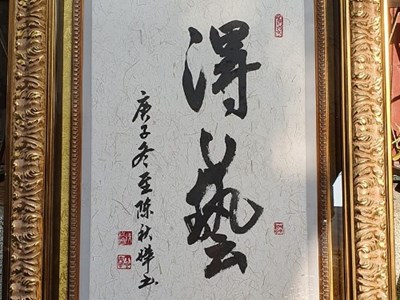 得藝
庚子冬至陳秋書